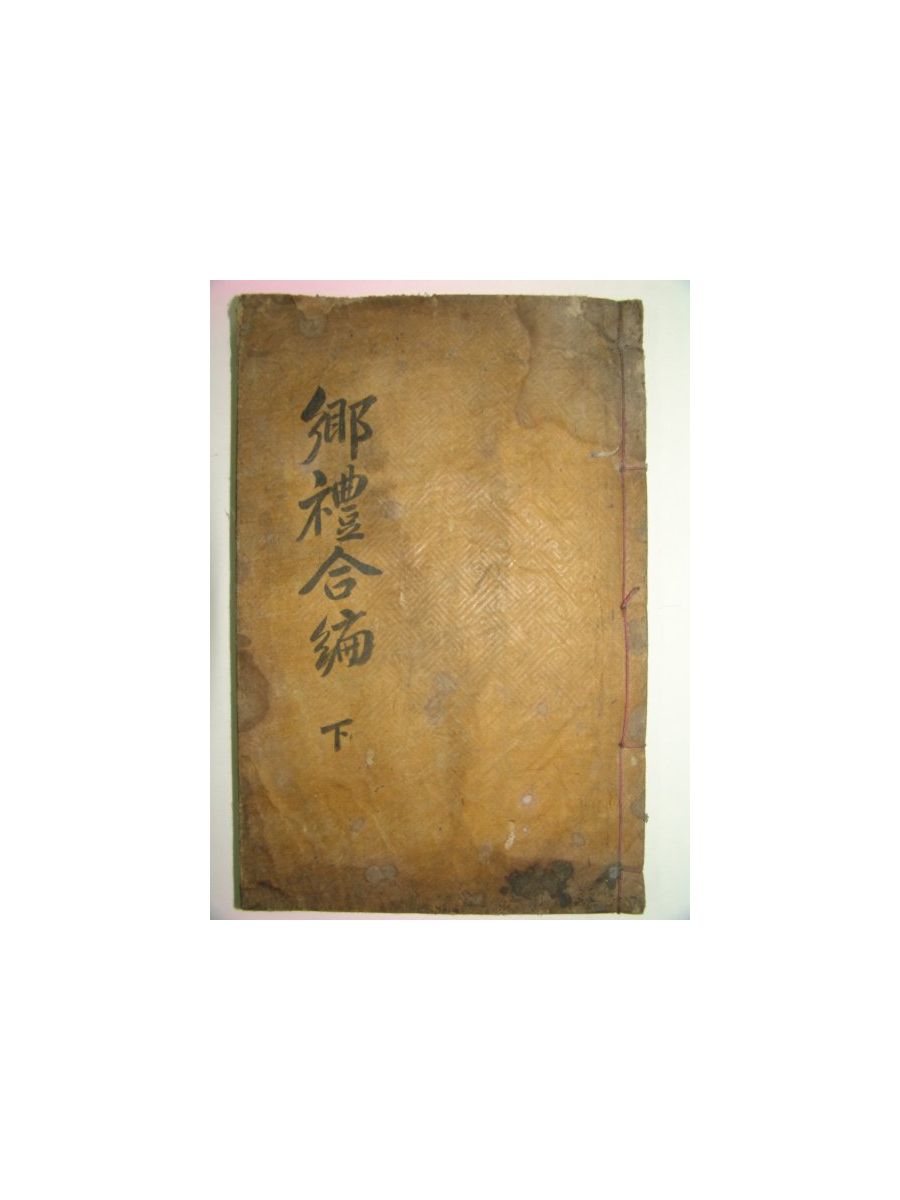 鄕禮合編 下